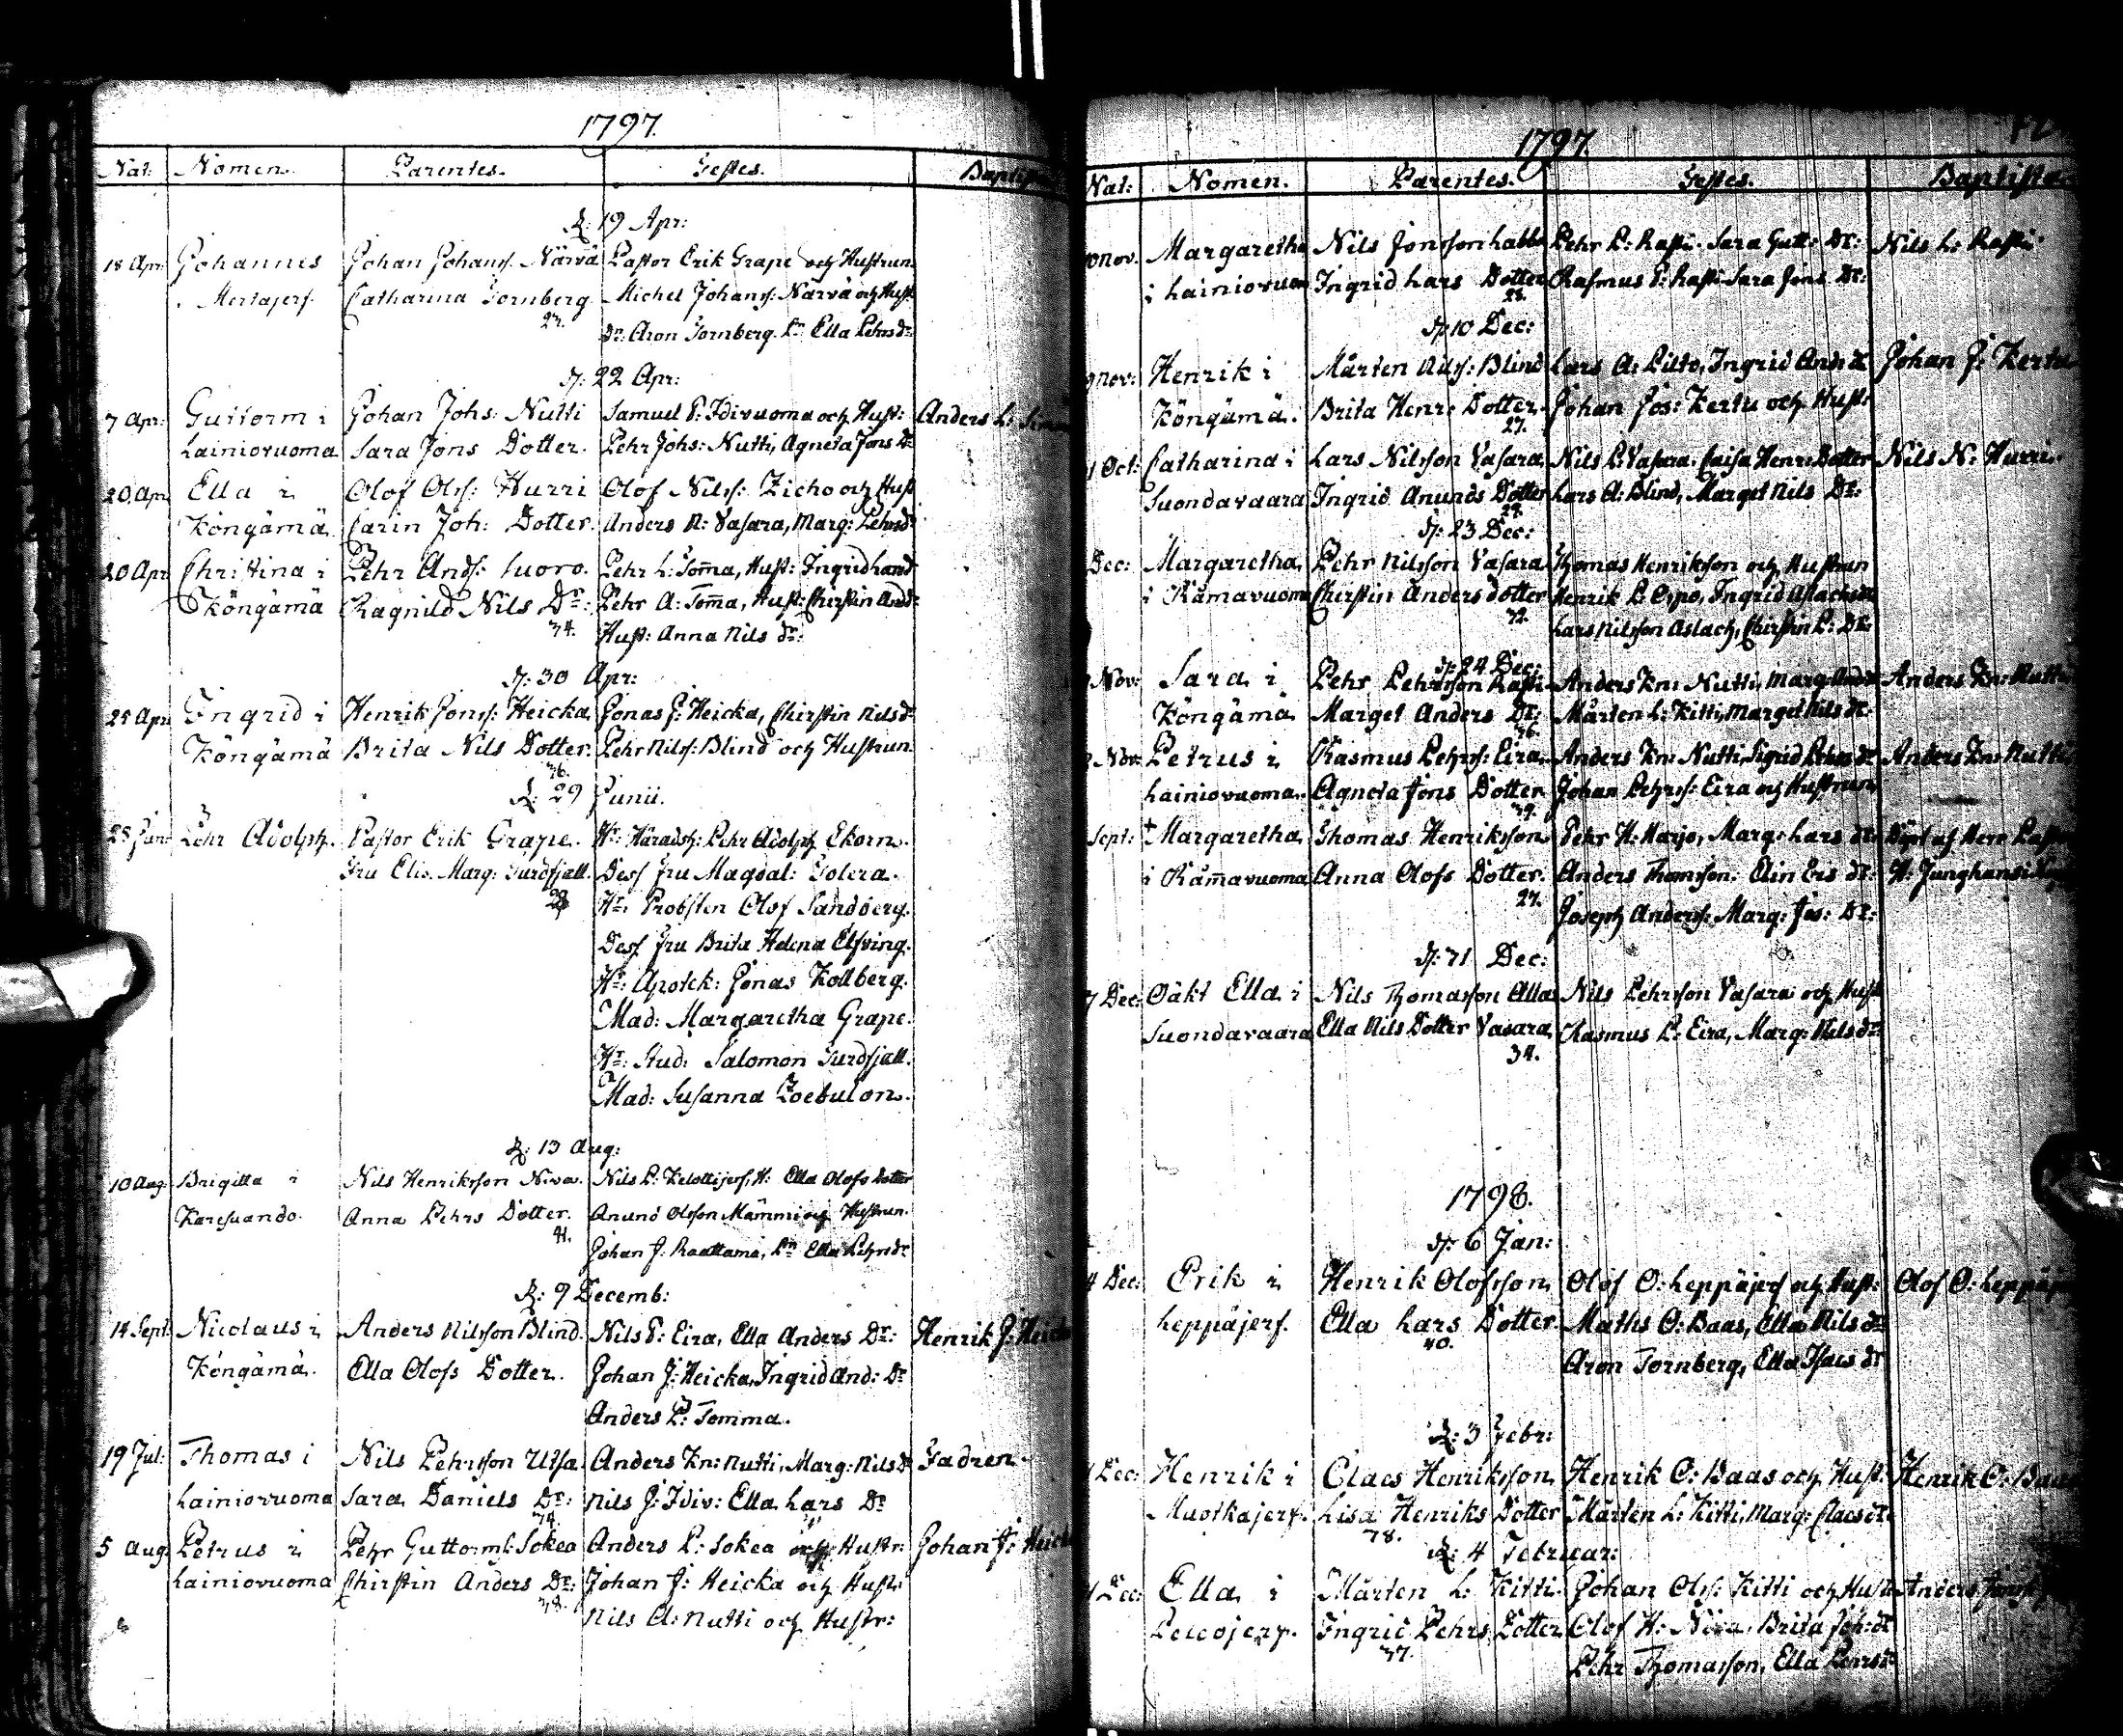 1797.
Nat: Nomen. Parentes. Testes.
D: 19 Apr:
18 Apr: Johannes Johan Johanss. Närvä Pastor Erik Grape och Hustrun
Mertajerf. Catharina Tornberg Michel Johanss: Närvä och Hust
27. Dr: Aron Tornberg. Pn Ella Pehrs dr
D: 22 Apr:
7 Apr: Guttorm i Johan Johs: Nutti Samuel T: Idivuoma och Hust: Anders L:
Lainiovuoma Sara Jons Dotter. Pehr Johs: Nutti, Agneta Jons Dr
20 Apr Ella i Olof Olss: Hurri Olof Nilss: Zicho och Hust
Köngämä Carin Joh: Dotter. Anders N: Vasara, Marg: Pehrs dr
20 Apr Christina i Pehr Ands: Luoro. Pehr L: Tom̄a, Hust: Ingrid
Köngämä Ragnild Nils Dr: Pehr A: Tom̄a, Hust: Chirstin And:
34. Hust: Anna Nils dr:
D: 30 Apr:
25 Apr Ingrid i Henrik Jonss: Heicka Jonas J: Heicka, Chirstin Nils dr
Köngämä Brita Nils Dotter. Pehr Nilss: Blind och Hustrun
36.
D: 29 Junii.
25 Jun: Pehr Adolph. Pastor Erik Grape. Hr: Häradsh: Pehr Adolph Ekorn.
Fru Elis. Marg: Turdfjäll. Dess Fru Magdal: Polera.
Hr: Probsten Olof Sandberg.
Dess Fru Brita Helena Elfving.
Hr: Apotek: Jonas Kollberg.
Mad: Margaretha Grape.
Hr: Stud: Salomon Turdfjäll.
Mad: Susanna Zoebulon.
D: 13 Aug:
10 Aug: Brigitta i Nils Henriksson Niva. Nils P: Kelottijerf, H: Ella Olofs Dotter
Karesuando. Anna Pehrs Dotter. Anund Olsson Mämmi och Hustrun.
41. Johan J: Raattama, Pn Ella Pehrs dr
D: 9 Decemb:
14 Sept: Nicolaus i Anders Nilsson Blind. Nils T: Eira, Ella Anders Dr: Henrik J:
Köngämä. Ella Olofs Dotter. Johan J: Heicka, Ingrid And: Dr
Anders P: Tomma.
19 Jul: Thomas i Nils Pehrsson Utsa Anders Kn: Nutti, Marg: Nils dr Fadren.
Lainiovuoma Sara Daniels Dr: Nils J: Idiv: Ella Lars Dr
5 Aug Petrus i Pehr Guttormss: Sokea Anders P: Sokea och Hustr: Johan J:
Lainiovuoma Chirstin Anders Dr: Johan J: Heicka och Hustr:
38. Nils A: Nutti och Hustr:
1797.
Nat: Nomen. Parentes. Testes. Baptista
Nov. Margaretha Nils Jonsson Labba Pehr P: Rasti. Sara Gutt: Dr: Nils L: Rasti
i Lainiovuom Ingrid Lars Dotter Rasmus P: Rasti Sara Jons Dr:
28.
D: 10 Dec:
Nov: Henrik i Mårten Nilss: Blind Lars A: Pilto, Ingrid And: dr Johan J: Kertu
Köngämä. Brita Henr: Dotter. Johan Jos: Kertu och Hust:
27.
Oct: Catharina i Lars Nilsson Vasara Nils P: Vasara. Caisa Henr: Dotter Nils N: Hurri.
Suondavaara Ingrid Anunds Dotter Lars A: Blind, Marget Nils Dr:
D: 23 Dec:
Dec: Margaretha Pehr Nilsson Vasara Thomas Henriksson och Hustrun
i Råmavuoma Chirstin Anders dotter Henrik P: Orpo, Ingrid Aslachs dr
32. Lars Nilsson Aslach, Chirstin P: Dr:
D: 24 Dec:
Nov: Sara i Pehr Pehrsson Rasti Anders Kn: Nutti, Marg: Ands dr Anders Kn: Nutti
Köngämä Marget Anders Dr: Mårten L: Kitti, Marget Nils dr
36.
Nov: Petrus i Rasmus Pehrss: Eira. Anders Kn: Nutti, Sigrid Pehrs dr Anders Kn: Nutti
Lainiovuoma. Agneta Jons Dotter Johan Pehrss: Eira och Hustrun
39.
Sept: + Margaretha Thomas Henriksson Pehr H: Marjo, Marg: Lars dr Döpt af Herr
i Råm̄avuoma Anna Olofs Dotter. Anders Thomsson: Elin Ers dr: H: Junghans i
27. Joseph Anderss: Marg: Jos: Dr:
D: 31 Dec:
7 Dec: Oäkt Ella i Nils Thomasson Alla Nils Pehrsson Vasara och Hust
Suondavaara Ella Nils Dotter Vasara Rasmus P: Eira, Marg: Nils dr
34.
1798.
D: 6 Jan:
4 Dec: Erik i Henrik Olofsson Olof O: Leppäjerf och Hust: Olof O:
Leppäjerf. Ella Lars Dotter Maths O: Baas, Ella Nils dr
40. Aron Tornberg, Ella Isacs dr
D: 3 Febr:
Dec: Henrik i Claes Henriksson Henrik O: Baas och Hust: Henrik O:
Muotkajerf. Lisa Henriks Dotter Mårten L: Kitti, Marg: Claes dr
38.
D: 4 Februar:
Dec: Ella i Mårten L: Kitti Johan Olss: Kitti och Hust: Anders
Peltojerf. Ingrid Pehrs Dotter Olof H: Niva. Brita Joh: dr
37. Pehr Thomasson, Ella Pehrs dr